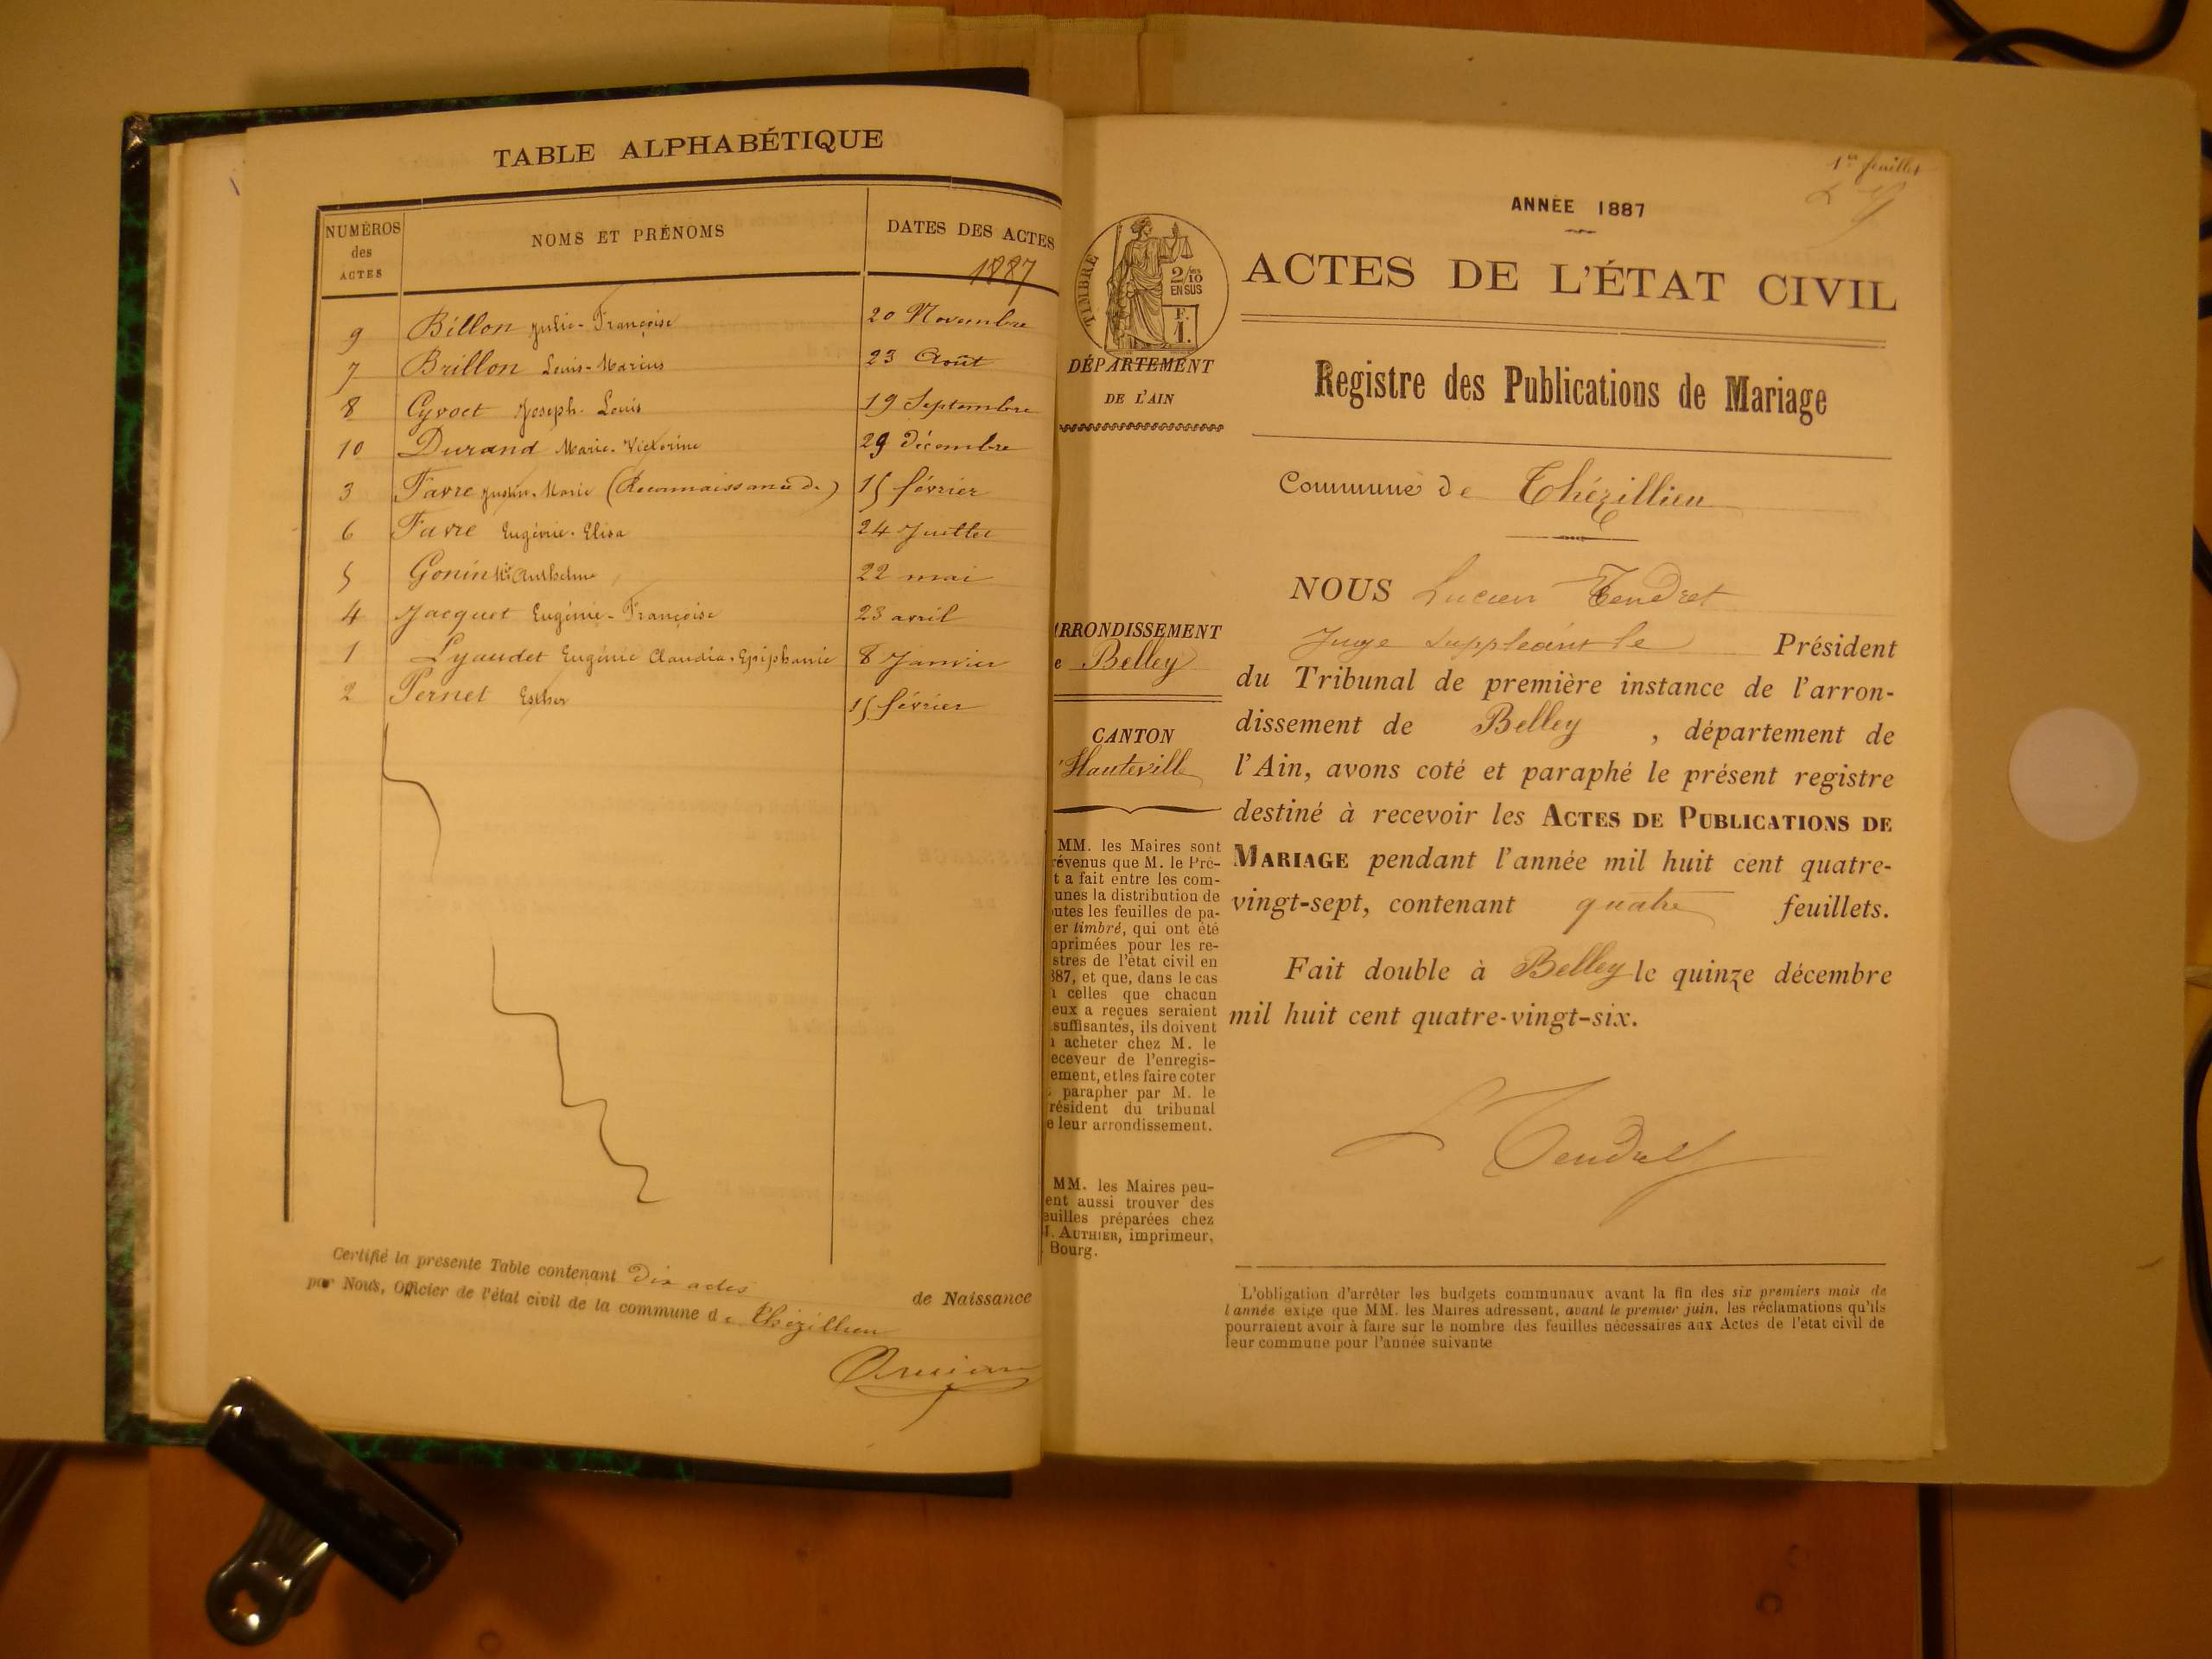 TABLE ALPHABÉTIQUE
NUMÉROS des ACTES
NOMS ET PRÉNOMS
DATES DES ACTES
1887
9 Billon Julie-Françoise 20 Novembre
7 Brillon Louis-Marius 23 Août
8 Cyvoct Joseph-Louis 19 Septembre
10 Durand Marie-Victorine 29 décembre
3 Favre Justin-Marie (Reconnaissance de) 15 février
6 Favre Eugénie-Elisa 24 Juillet
5 Gonin Anthelme 22 mai
4 Jacquet Eugénie-Françoise 23 avril
1 Lyaudet Eugénie Claudia-Epiphanie 8 Janvier
2 Pernet Esther 15 février
Certifié la presente Table contenant Dix actes de Naissance
par Nous, Officier de l'état civil de la commune de Thézillieu
1er feuillet
ANNÉE 1887
TIMBRE
2/10 EN SUS
F. 1.
ACTES DE L'ÉTAT CIVIL
DÉPARTEMENT
DE L'AIN
Registre des Publications de Mariage
Commune de Thézillieu
NOUS Lucien Tendret
Juge suppléant le Président
du Tribunal de première instance de l'arron-
dissement de Belley , département de
l'Ain, avons coté et paraphé le présent registre
destiné à recevoir les ACTES DE PUBLICATIONS DE
MARIAGE pendant l'année mil huit cent quatre-
vingt-sept, contenant quatre feuillets.
Fait double à Belley le quinze décembre
mil huit cent quatre-vingt-six.
L Tendret
RRONDISSEMENT
e Belley
CANTON
Hauteville
MM. les Maires sont
révenus que M. le Pré-
t a fait entre les com-
unes la distribution de
utes les feuilles de pa-
er timbré, qui ont été
primées pour les re-
stres de l'état civil en
887, et que, dans le cas
celles que chacun
eux a reçues seraient
suffisantes, ils doivent
acheter chez M. le
eceveur de l'enregis-
ement, et les faire coter
parapher par M. le
résident du tribunal
e leur arrondissement.
MM. les Maires peu-
ent aussi trouver des
euilles préparées chez
J. AUTHIER, imprimeur,
Bourg.
L'obligation d'arrêter les budgets communaux avant la fin des six premiers mois de
l'année exige que MM. les Maires adressent, avant le premier juin, les réclamations qu'ils
pourraient avoir à faire sur le nombre des feuilles nécessaires aux Actes de l'état civil de
leur commune pour l'année suivante